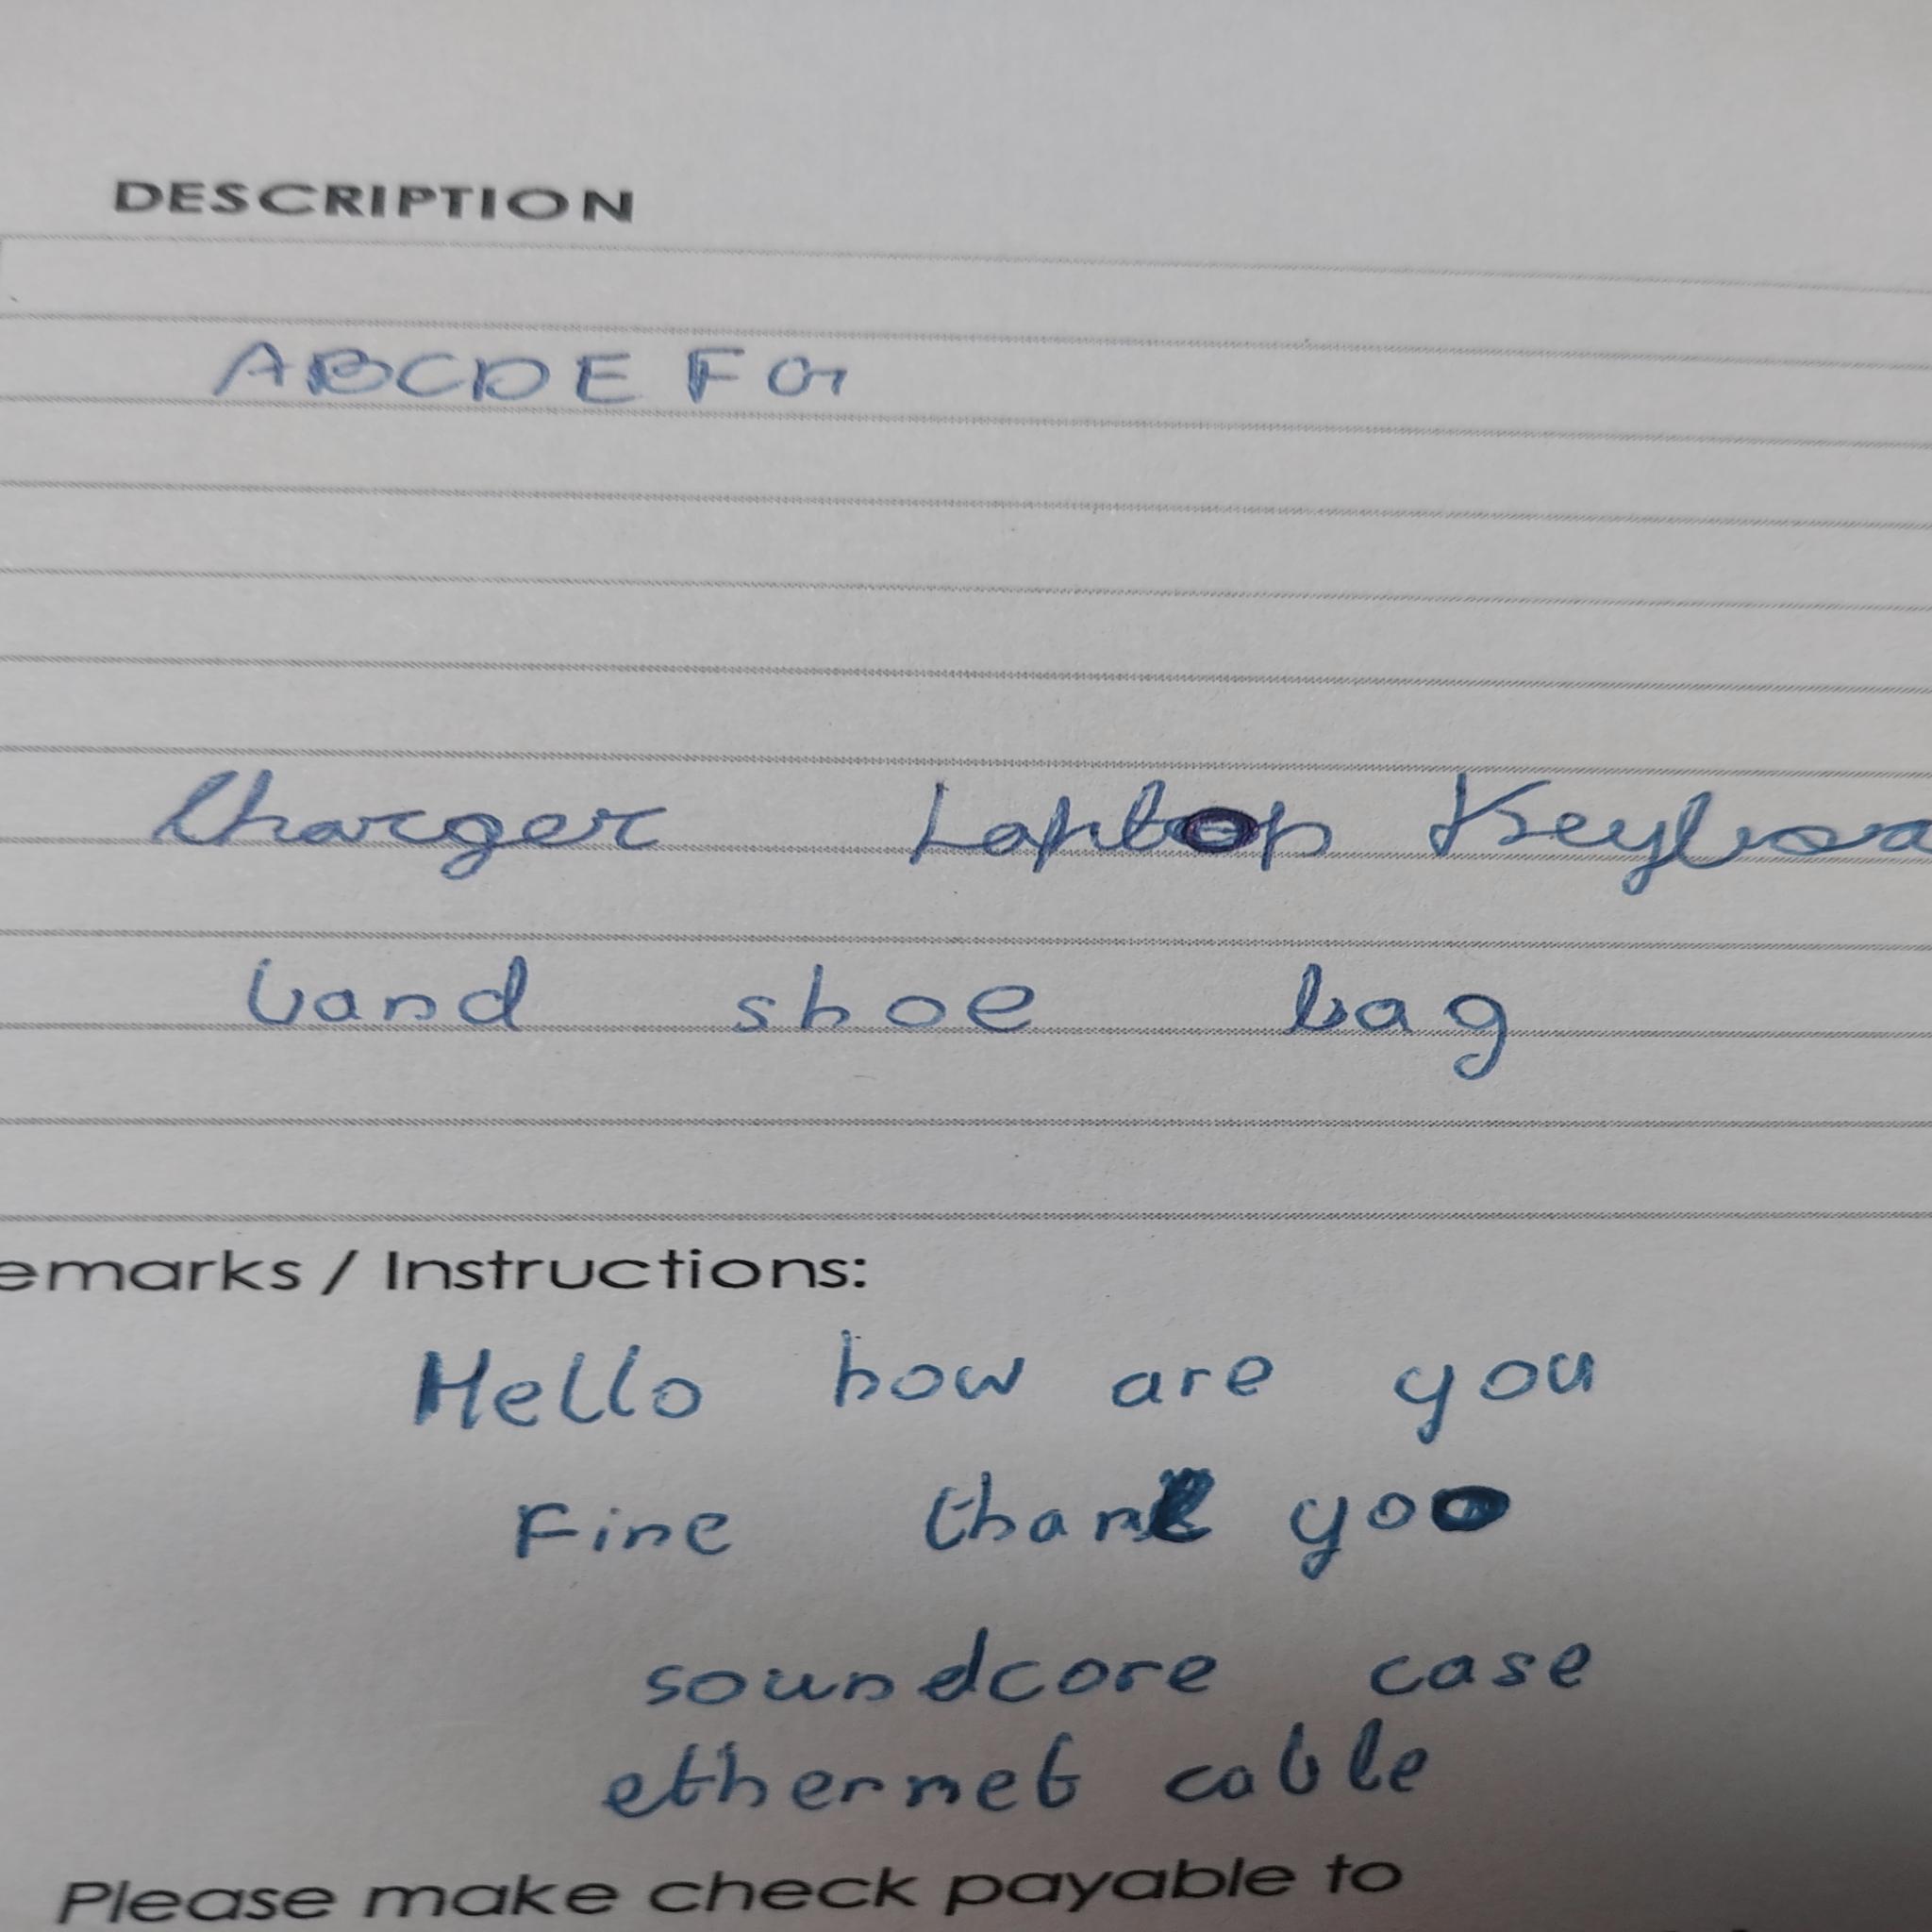 DESCRIPTION
ABCDE F G
Charger Laptop Keyboa
band shoe bag
emarks / Instructions:
Hello how are you
Fine thank you
soundcore case
ethernet cable
Please make check payable to